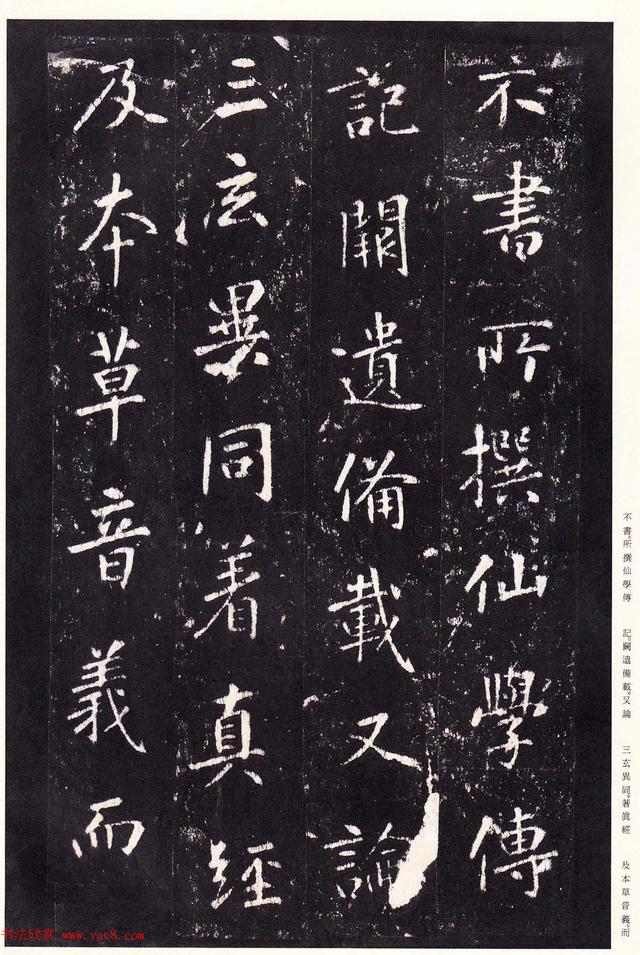 不書所撰仙學傳
記闕遺備載又論
三玄異同着真經
及本草音義而
不書。所撰仙學傳　記。闕遺備載。又論　三玄異同。著眞經　及本草音義。而
书法欣赏 www.yac8.com